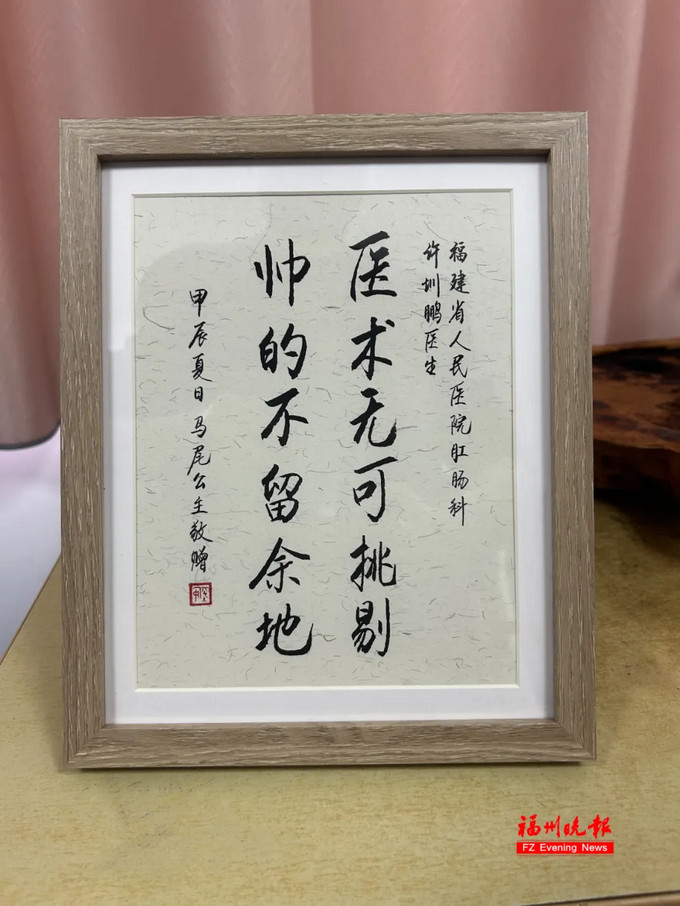 福建省人民医院肛肠科
许圳鹏医生
医术无可挑剔
帅的不留余地
甲辰夏日马尾公主敬赠
福州晚报
FZ Evening News